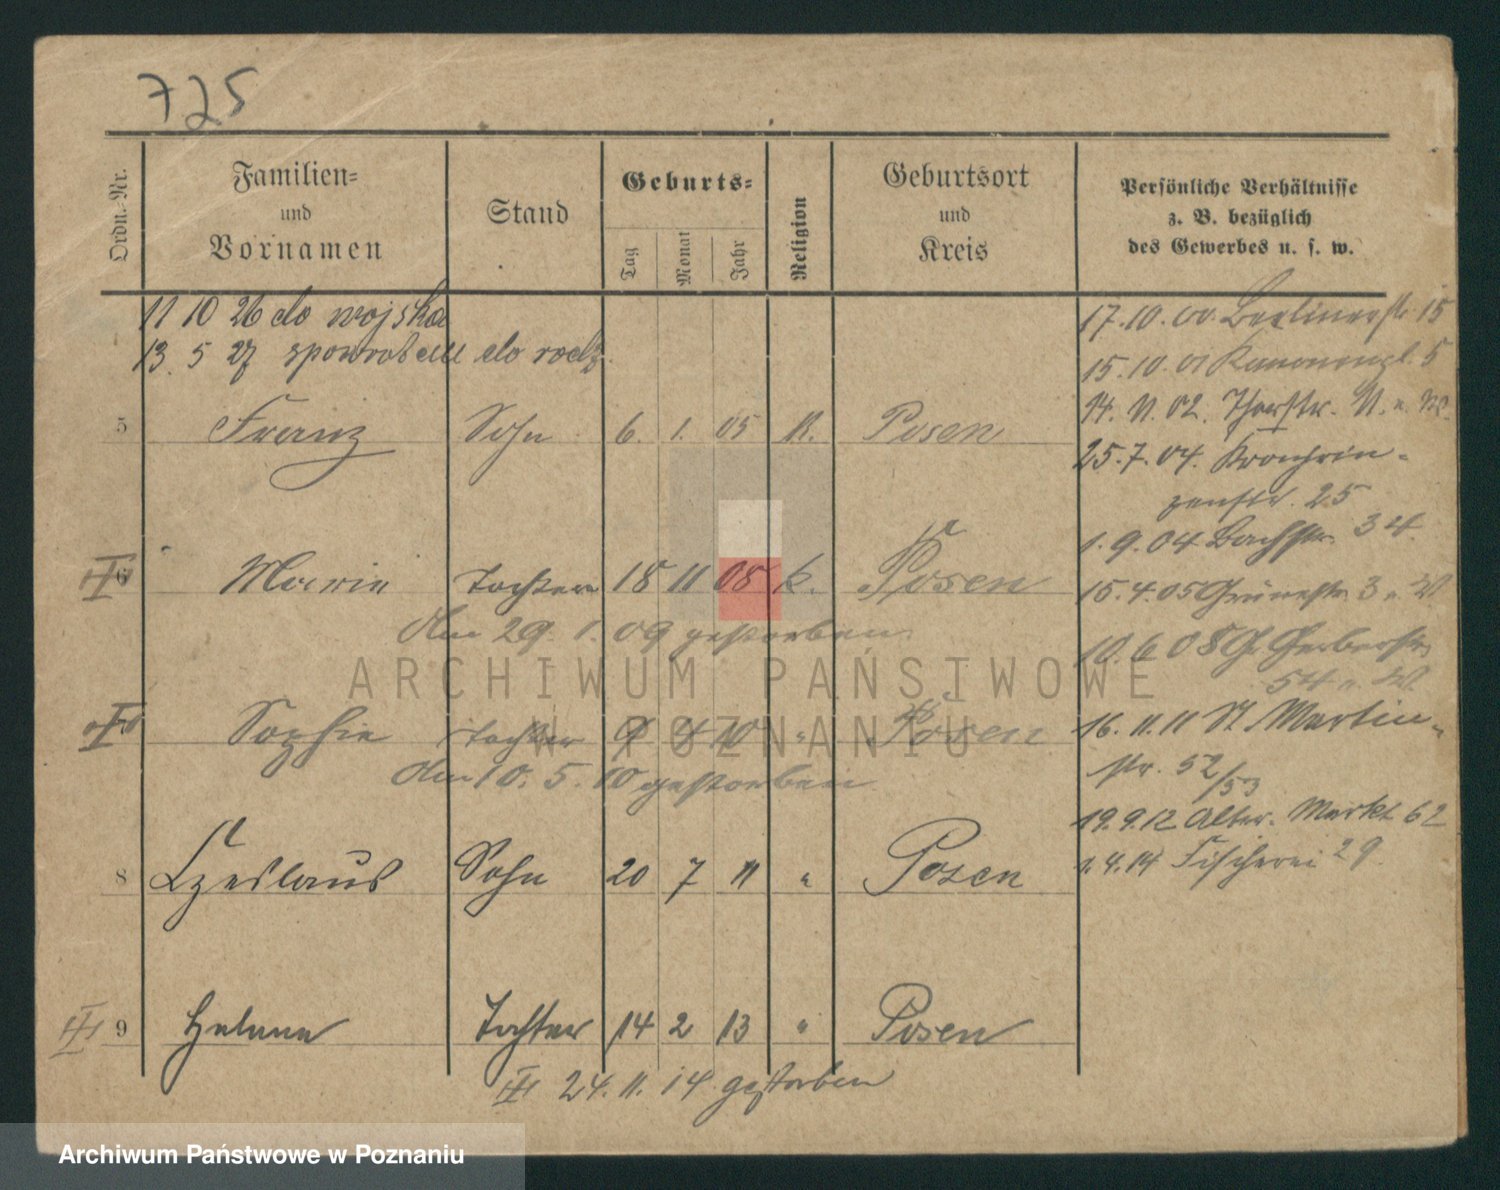 725
Ordn.-Nr.
Familien-
und
Vornamen
Stand
Geburts-
Tag
Monat
Jahr
Religion
Geburtsort
und
Kreis
Persönliche Verhältnisse
z. B. bezüglich
des Gewerbes u. s. w.
11 10 26 do wojska
13. 5 27 do rodz.
5 Franz Sohn 6. 1. 05 K. Posen
6 Maria Tochter 18 11 08 k. Posen
Am 29. 1. 09 gestorben
Sophie Tochter 9 4 10 " Posen
Am 10. 5. 10 gestorben
8 Czeslaus Sohn 20 7 11 " Posen
9 Helene Tochter 14 2 13 " Posen
24. 11. 14 gestorben
17. 10. 00. Berlinerstr 15
15. 10. 01 Kanonenpl. 5
14. 11. 02. Thorstr. 11.
25. 7. 04. Kronprin-
zenstr. 25
1. 9. 04 Bachstr. 34
15. 4. 05 Grünestr. 3
10. 6 08 Gr. Gerberstr
54
16. 11. 11 St. Martin-
str. 52/53
19. 9. 12 Alter. Markt 62
1. 4. 14 Fischerei 29
ARCHIWUM PAŃSTWOWE
W POZNANIU
Archiwum Państwowe w Poznaniu